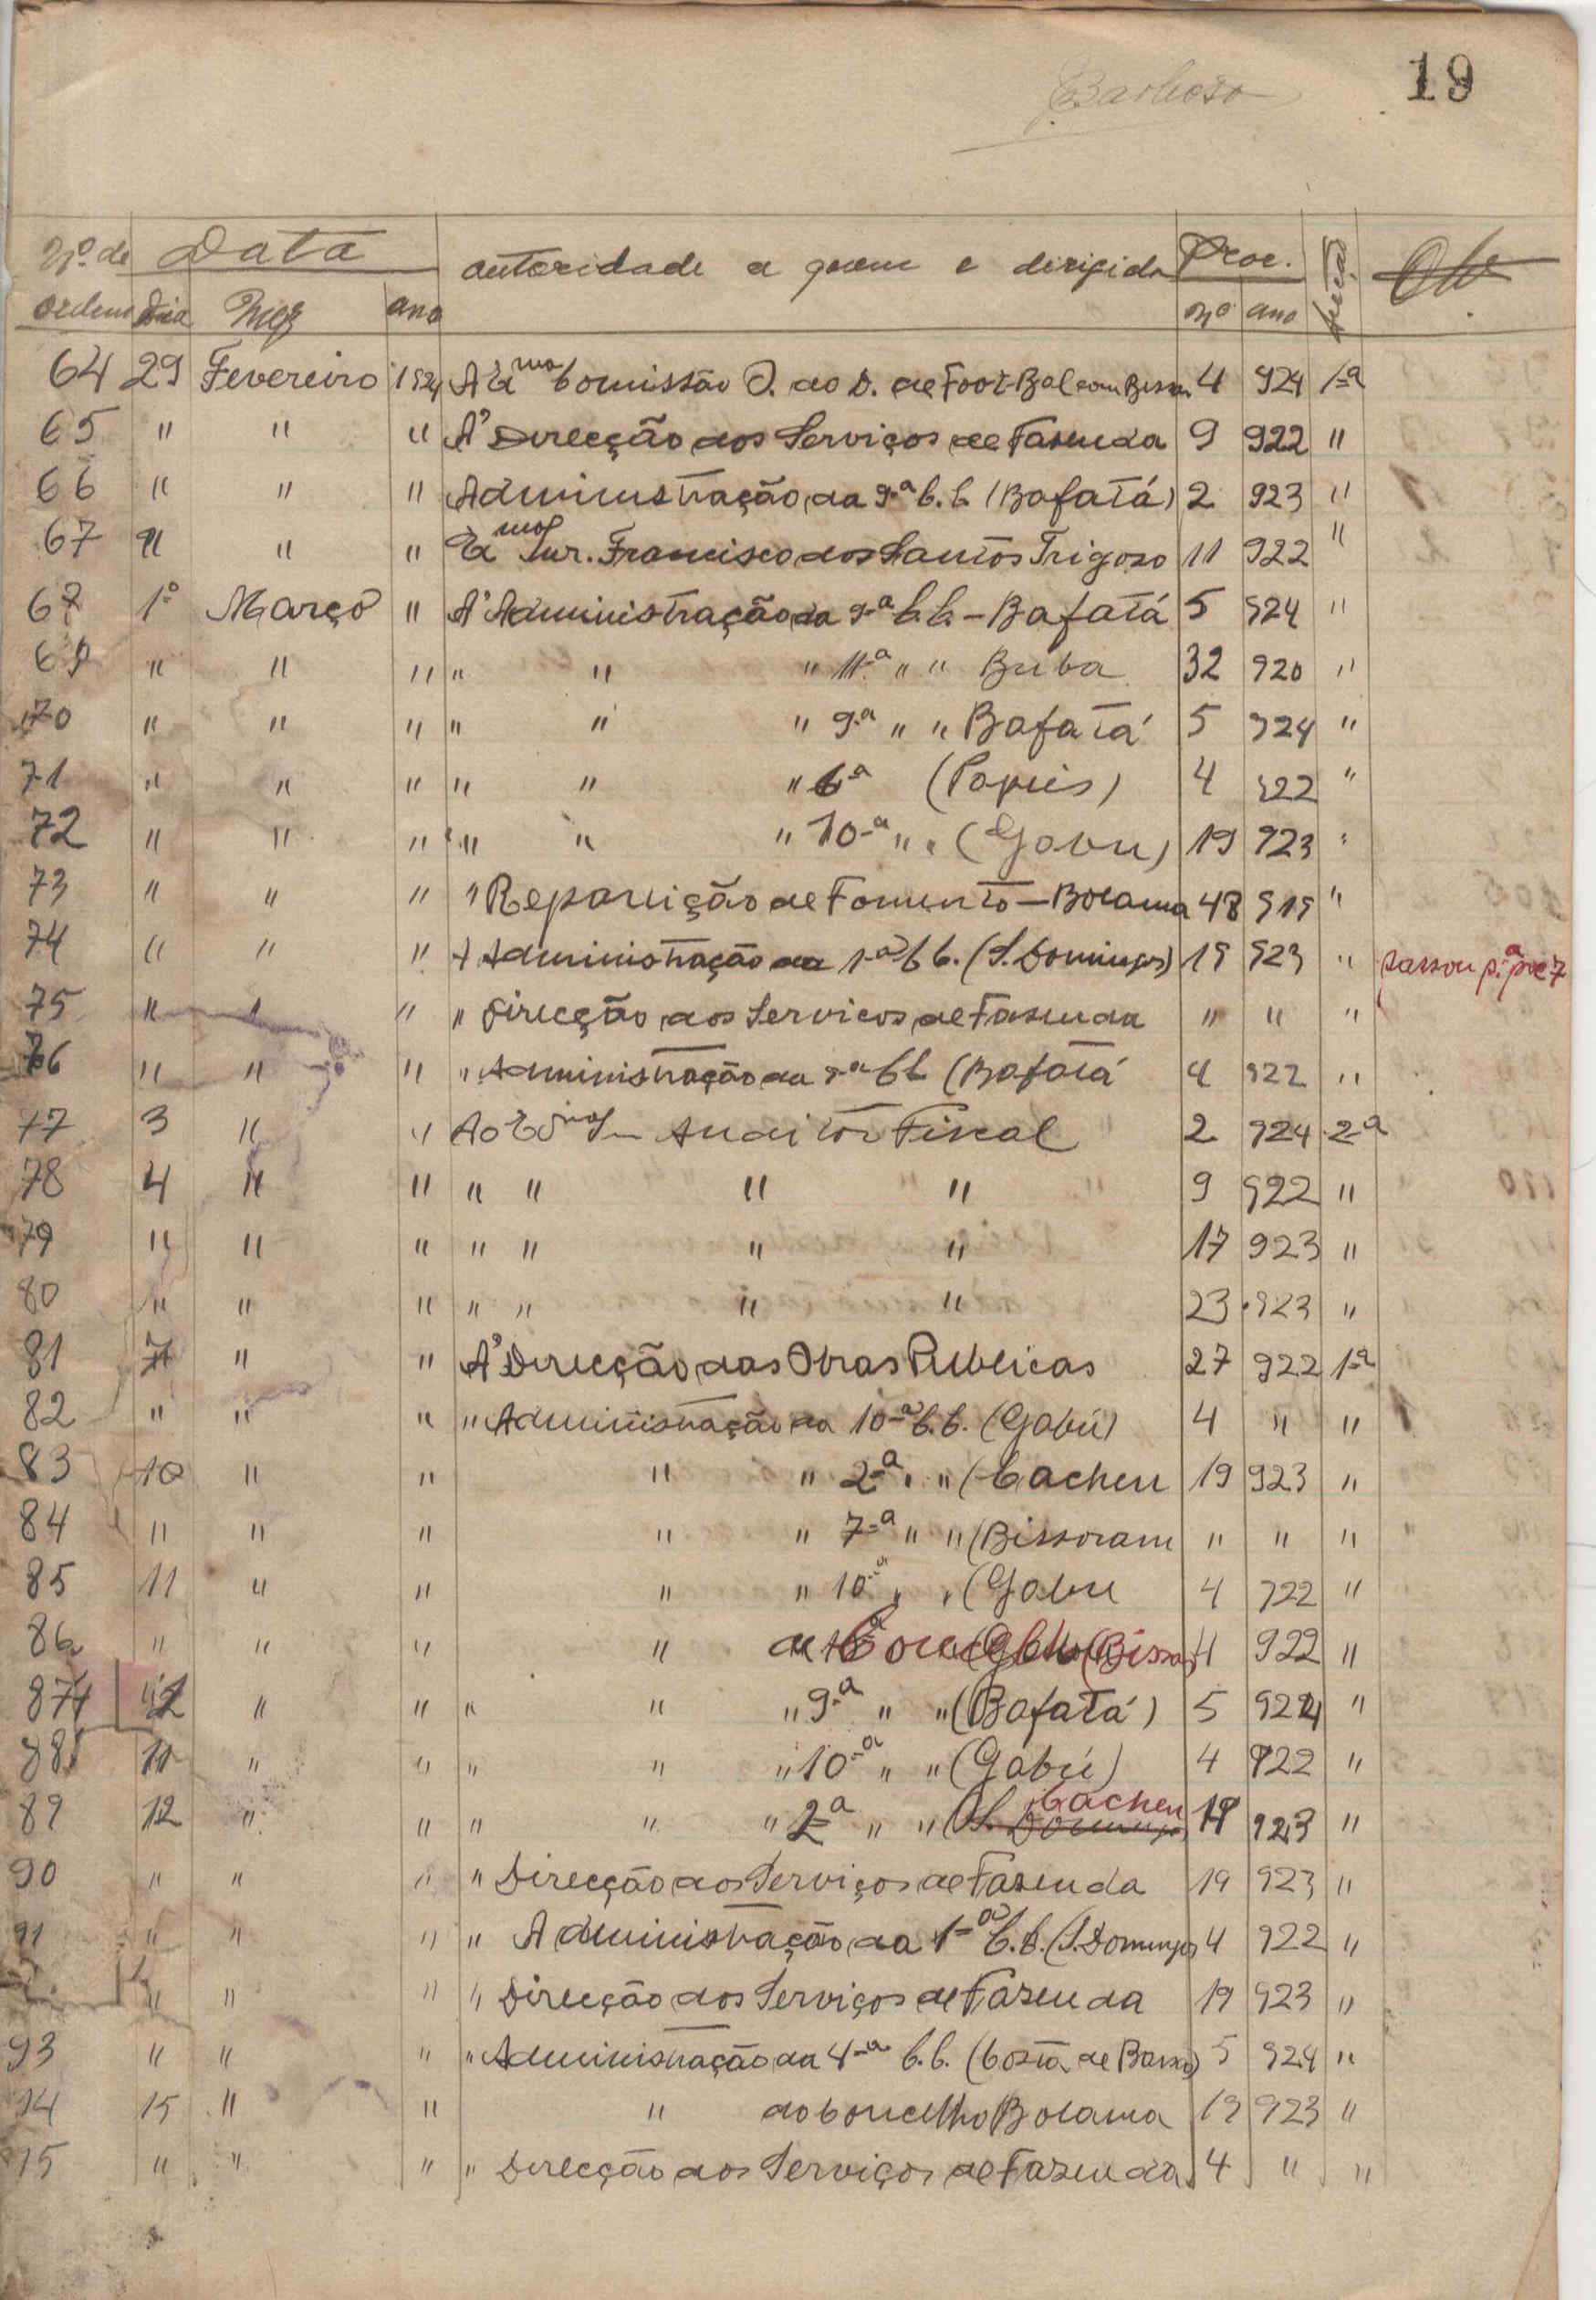 Barbosa
19
Nº de Data autoridade a quem e dirigida Proc. Secção Obs
ordem Dia Mez ano nº ano
64 29 Fevereiro 1924 A Exma Comissão O. do D. de Foot-Bal em Bissau 4 924 1-a
65 " " " A' Direcção dos Serviços de Fazenda 9 922 "
66 " " " Administração da 9-a C.C. (Bafatá) 2 923 "
67 " " " Exmo Snr. Francisco dos Santos Trigoso 11 922 "
68 1º Março " A' Administração da 9-a C.C. - Bafatá 5 924 "
69 " " " " " " 11-a " " Buba 32 920 "
70 " " " " " " 9-a " " Bafatá 5 924 "
71 " " " " " " 6-a (Papeis) 4 922 "
72 " " " " " " 10-a " " (Gabu) 19 923 "
73 " " " " Repartição de Fomento - Bolama 48 919 "
74 " " " A Administração da 1-a C.C. (S. Domingos) 19 923 " passou p.a proc 7
75 " " " " Direcção dos Servicos de Fazenda " " "
76 " " " " Administração da 9-a C.C. (Bafatá 4 922 "
77 3 " " Ao Exmo Snr Auditor Fiscal 2 924 2-a
78 4 " " " " " " 9 922 "
79 " " " " " " " 17 923 "
80 " " " " " " " 23 923 "
81 7 " " A' Direcção das Obras Publicas 27 922 1-a
82 " " " " Administração da 10-a C.C. (Gabú) 4 " "
83 10 " " " " 2-a " " (Cacheu 19 923 "
84 " " " " " 7-a " " (Bissoram " " "
85 11 " " " " 10-a " " (Gabu 4 922 "
86 " " " " de Concelho (Bissau) 4 922 "
87 12 " " " " " 9-a " " (Bafatá) 5 924 "
88 11 " " " " " 10-a " " (Gabú) 4 922 "
89 12 " " " " " 2-a " " (S. Domingos Cacheu 19 923 "
90 " " " " Direcção dos Serviços de Fazenda 19 923 "
91 " " " " Administração da 1-a C.C. (S. Domingos 4 922 "
" " " " Direcção dos Serviços de Fazenda 19 923 "
93 " " " " Administração da 4-a C.C. (Costa de Baixo) 5 924 "
94 15 " " " do Concelho Bolama 19 923 "
95 " " " " Direcção dos Serviços de Fazenda 4 " "